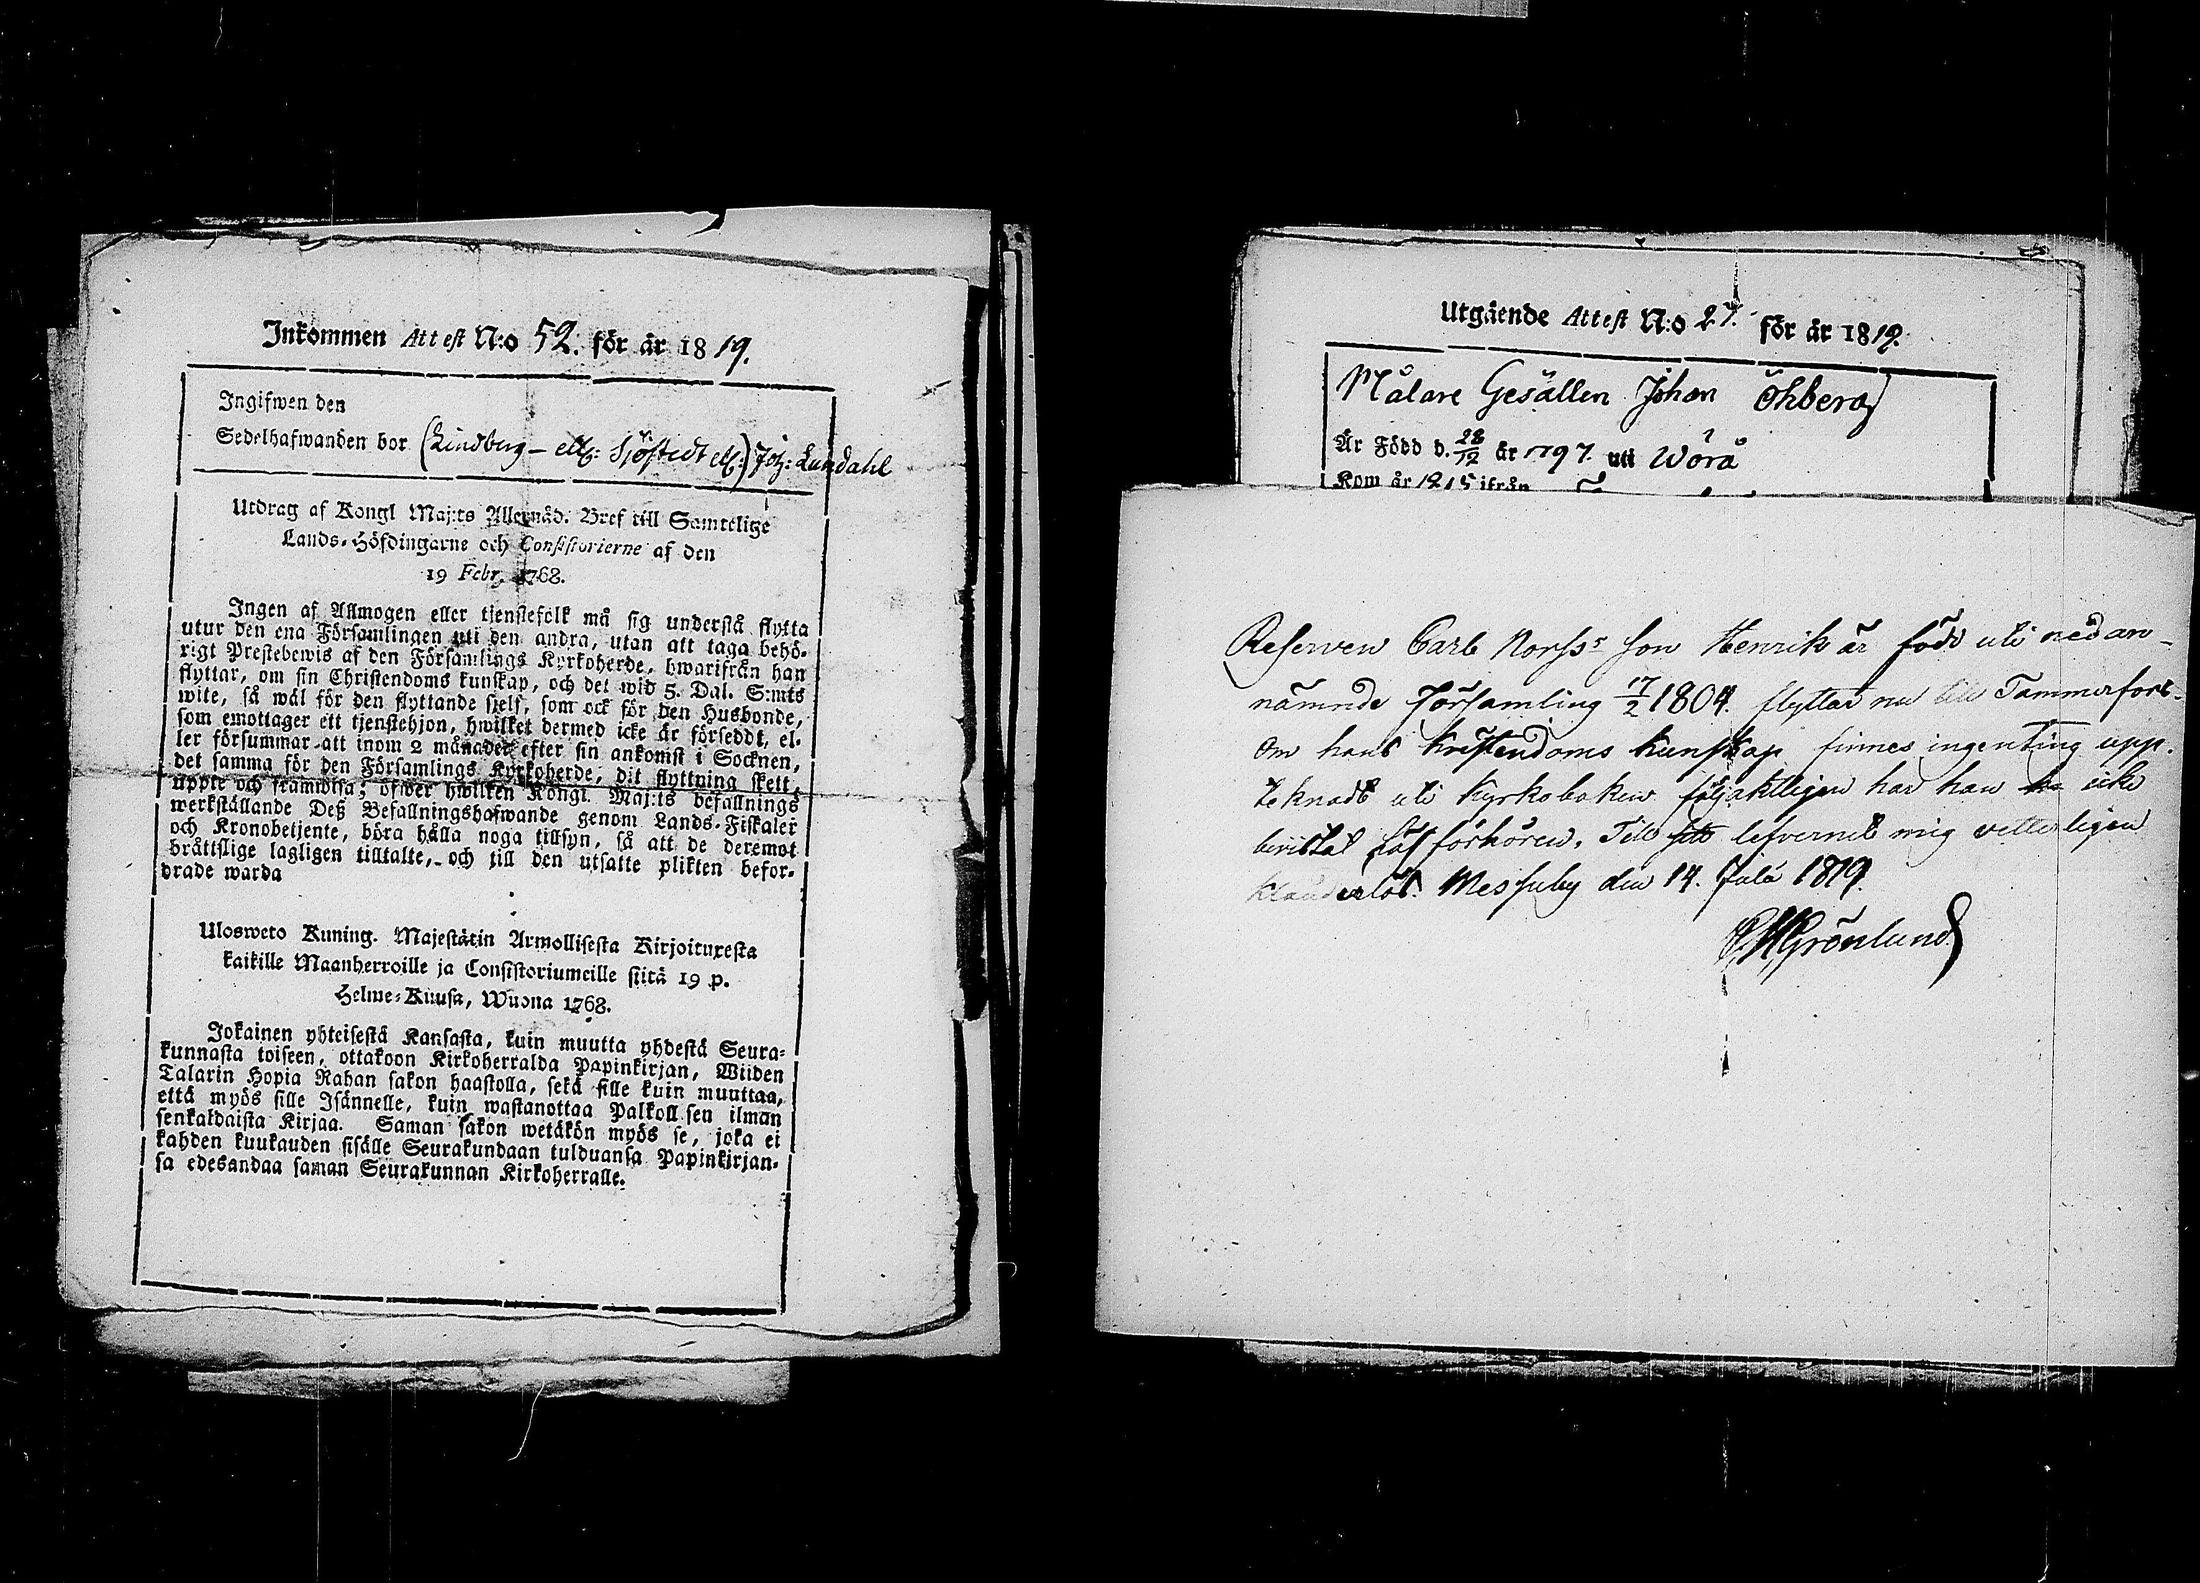 Inkommen Attest N:o 52. för år 1819.
Ingifwen den
Sedelhafwanden bor (Lindberg – ell: Sjöstedt ell:) Joh: Lundahl
Utdrag af Kongl Maj:ts Allernåd. Bref till Samtelige
Lands-Höfdingarne och Consistorierne af den
19 Febr. 1768.
Ingen af Allmogen eller tjenstefolk må sig understå flytta
utur den ena Församlingen uti den andra, utan att taga behö-
rigt Prestebewis af den Församlings Kyrkoherde, hwarifrån han
flyttar, om sin Christendoms kunskap, och det wid 5. Dal. S:mts
wite, så wäl för den flyttande sjelf, som ock för den Husbonde,
som emottager ett tjenstehjon, hwilket dermed icke är försedt, el-
ler försummar att inom 2 månader efter sin ankomst i Socknen,
det samma för den Församlings Kyrkoherde, dit flyttning skett,
uppte och framwisa; öfwer hwilken Kongl. Maj:ts befallnings
werkställande Deß Befallningshafwande genom Lands-Fiskaler
och Kronobetjente, böra hålla noga tillsyn, så att de deremot
bråttslige lagligen tilltalte, och till den utsatte plikten befor-
drade warda
Ulosweto Kuning. Majestätin Armollisesta Kirjoituxesta
kaikille Maanherroille ja Consistoriumeille siitä 19 p.
Helme-Kuusa, Wuona 1768.
Jokainen yhteisestä Kansasta, kuin muutta yhdestä Seura-
kunnasta toiseen, ottakoon Kirkoherralda Papinkirjan, Wiiden
Talarin Hopia Rahan sakon haastolla, sekä sille kuin muuttaa,
että myös sille Isännelle, kuin wastanottaa Palkollisen ilman
senkaldaista Kirjaa. Saman sakon wetäkön myös se, joka ei
kahden kuukauden sisälle Seurakundaan tulduansa Papinkirjan-
sa edesandaa saman Seurakunnan Kirkoherralle.
Utgående Attest N:o 27. för år 1819.
Målare Gesällen Johan Öhberg
Är Född d. 28/12 år 1797. uti Wörå
Kom år 1815 ifrån
Reserven Carl Norss's son Henrik är född uti nedan-
nämnde Församling 17/2 1804. flyttar nu till Tammerfors.
Om hans Kristendoms Kunskap finnes ingenting upp-
teknadt uti Kyrkoboken följaktligen har han icke
bevistat Läsförhören. Till lefvernet mig vetterligen
klanderlös. Messuby den 14. Julii 1819.
Grönlund